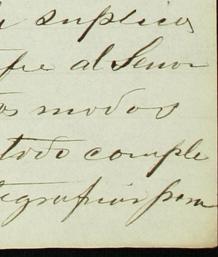 suplica
al Senor
modos
todo comple
tegrafias para